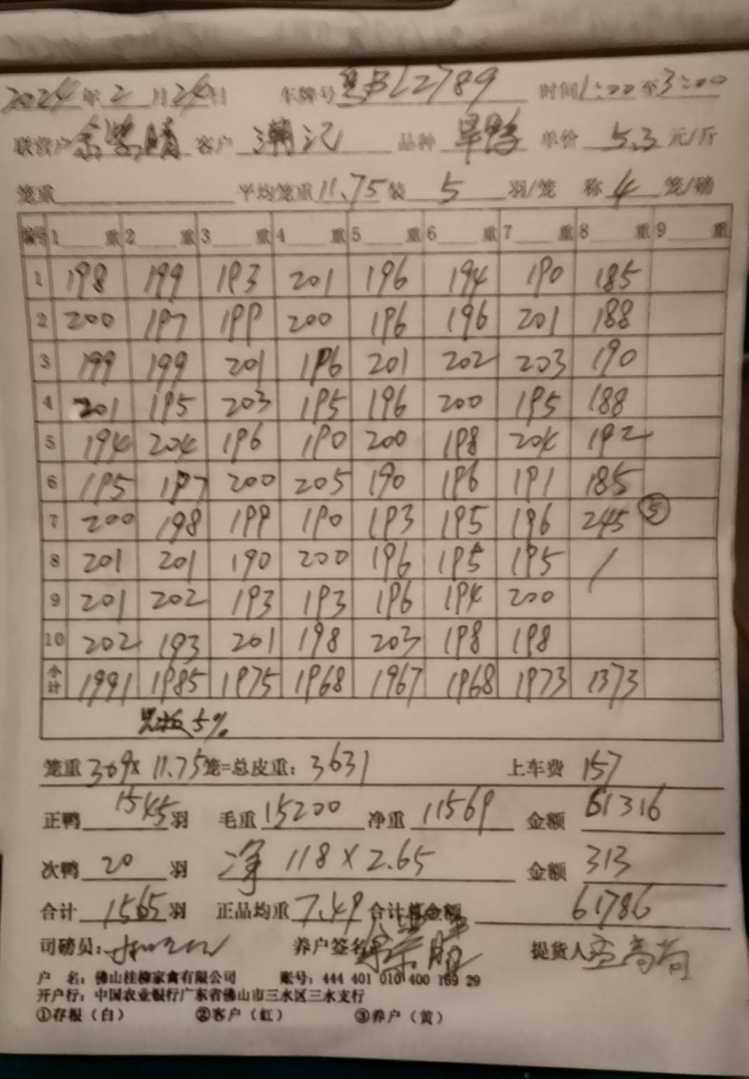 2024年2月24日 车牌号粤BL2789 时间1:00至3:00
联营户 客户潮记 品种旱鸭 单价5.3元/斤
笼重 平均笼重11.75装5羽/笼 称4笼/磅
编号 1 重 2 重 3 重 4 重 5 重 6 重 7 重 8 重 9 重
1 198 199 193 201 196 194 190 185
2 200 197 199 200 196 196 201 188
3 199 199 201 196 201 202 203 190
4 201 195 203 195 196 200 195 188
5 194 204 196 190 200 198 204 192
6 195 197 200 205 190 196 191 185
7 200 198 199 190 193 195 196 245 ⑤
8 201 201 190 200 196 195 195 /
9 201 202 193 193 196 194 200
10 202 193 201 198 203 198 198
小计 1991 1985 1975 1968 1967 1968 1973 1373
5%
笼重309x11.75笼=总皮重:3631 上车费157
正鸭1545羽 毛重15200 净重11569 金额61316
次鸭20羽 净118×2.65 金额313
合计1565羽 正品均重7.49 合计总金额61786
司磅员: 养户签名 提货人
户 名:佛山桂柳家禽有限公司 账号:444 401 010 400 169 29
开户行:中国农业银行广东省佛山市三水区三水支行
①存根(白) ②客户(红) ③养户(黄)